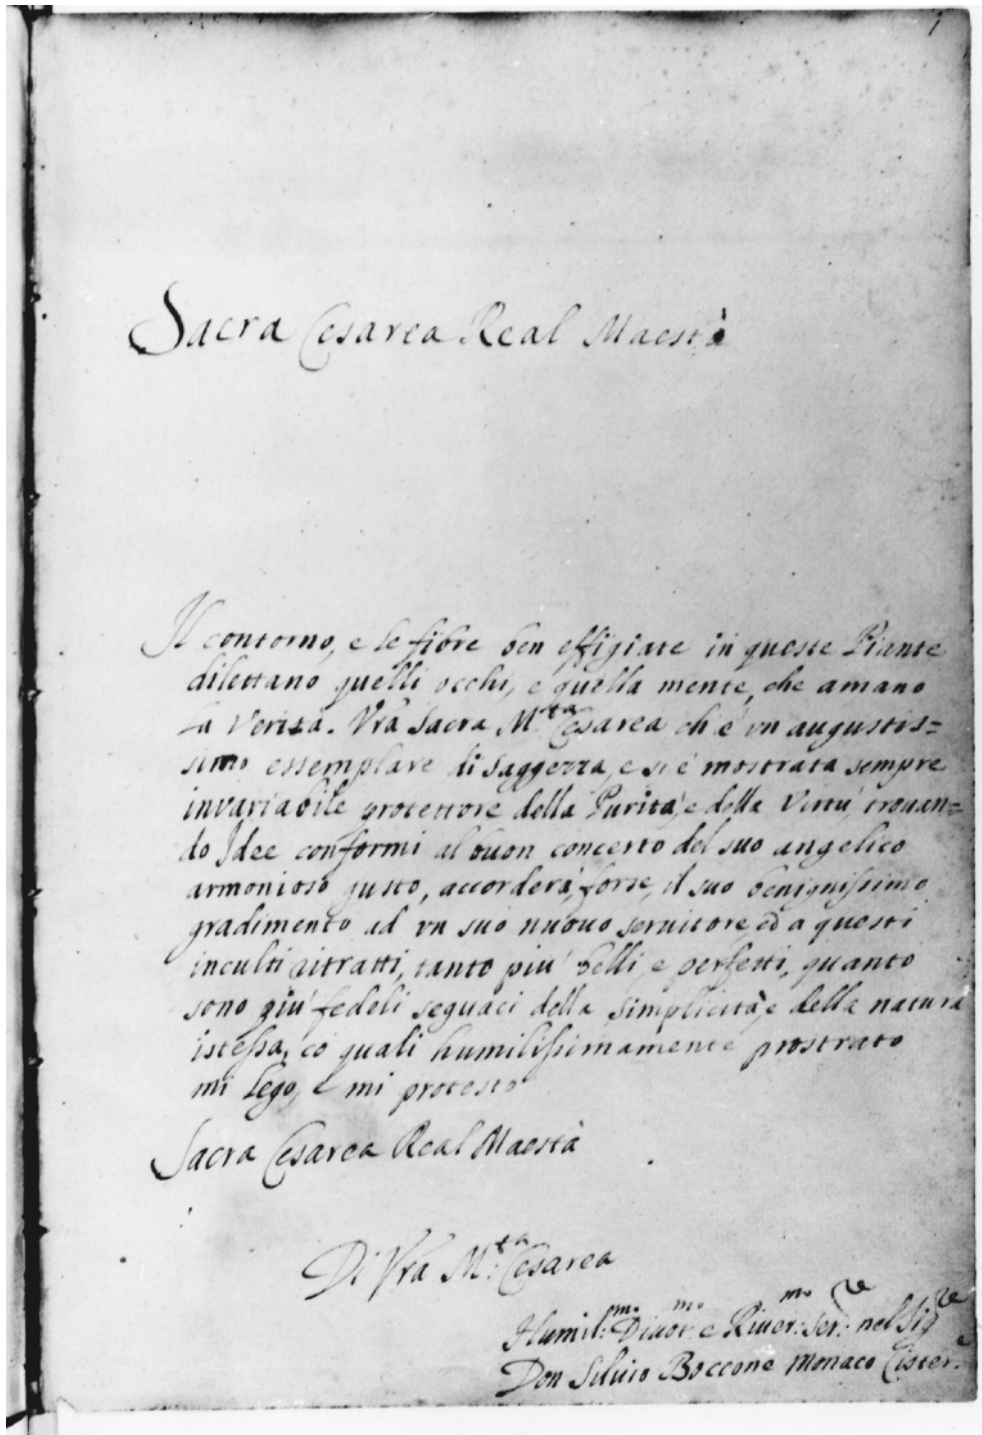 1
Sacra Cesarea Real Maestà
Il contorno, e le fibre ben effigiate in queste Piante
dilettano quelli occhi, e quella mente, che amano
la Verità. Vrã Sacra M.ta Cesarea ch'è vn augustis=
simo essemplare di saggezza, e si è mostrata sempre
invariabile protettore della Purità, e della Virtù, trouan=
do Idee conformi al buon concerto del suo angelico
armonioso gusto, accorderà, forse, il suo benignissimo
gradimento ad vn suo nuouo seruitore, ed a questi
inculti ritratti, tanto più belli, e perfetti, quanto
sono più fedeli seguaci della simplicità, e della natura
istessa, co quali humilissimamente prostrato
mi lego, e mi protesto
Sacra Cesarea Real Maestà
Di Vrã M.ta Cesarea
Humil:mo Diuot:mo e Riuer:mo Ser:re nel Sig.re
Don Siluio Boccone Monaco Cister.e